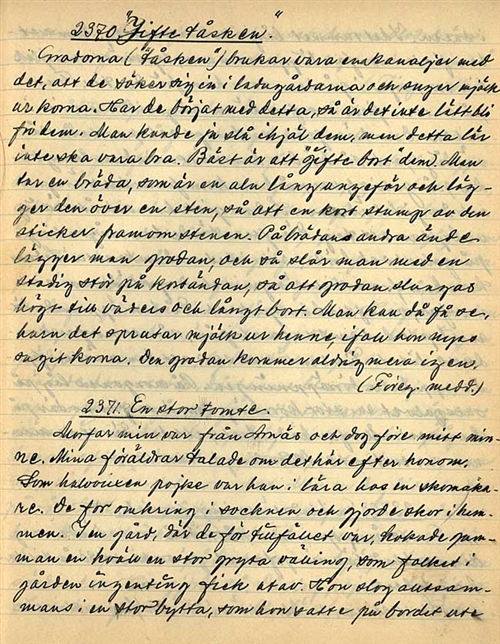 2370. "Gifte tåsken."
Grodorna ("tåsken") brukar vara ena kanaljer med
det, att de söker sig in i ladugårdarna och suger mjölk
ur korna. Har de börjat med detta, så är det inte lätt bli
frö dem. Man kunde ju slå ihjäl dem, men detta lär
inte ska vara bra. Bäst är att "gifte bort" dem. Man
tar en bräda, som är en aln lång ungefär och läg-
ger den över en sten, så att en kort stump av den
sticker framom stenen. På brädans andra ände
lägger man grodan, och så slår man med en
stadig stör på kortändan, så att grodan slungas
högt till väders och långt bort. Man kan då få se,
huru det sprutar mjölk ur henne, ifall hon nyss
sugit korna. Den grodan kommer aldrig mera igen.
(Föreg. medd.)
2371. En stor tomte.
Morfar min var från Arnäs och dog före mitt min-
ne. Mina föräldrar talade om det här efter honom.
Som halvvuxen pojke var han i lära hos en skomaka-
re. De for omkring i socknen och gjorde skor i hem-
men. I en gård, där de för tillfället var, kokade gum-
man en kväll en stor gryta välling, som folket i
gården ingenting fick utav. Hon slog alltsam-
mans i en stor bytta, som hon satte på bordet ute